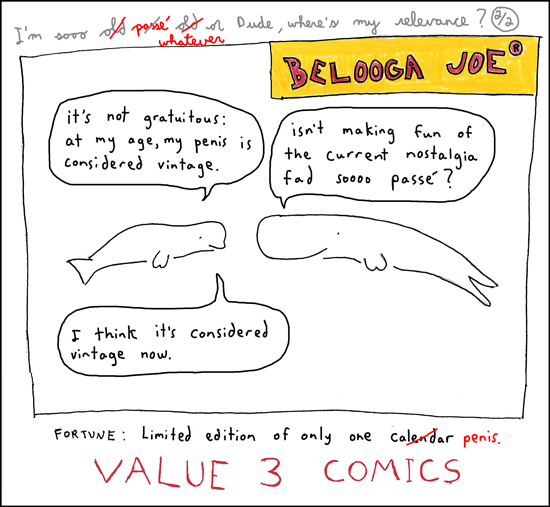 I'm sooo old passé old or Dude, where's my relevance? 2/2
whatever
BELOOGA JOE®
it's not gratuitous:
at my age, my penis is
considered vintage.
isn't making fun of
the current nostalgia
fad soooo passé?
I think it's considered
vintage now.
FORTUNE: Limited edition of only one calendar penis.
VALUE 3 COMICS